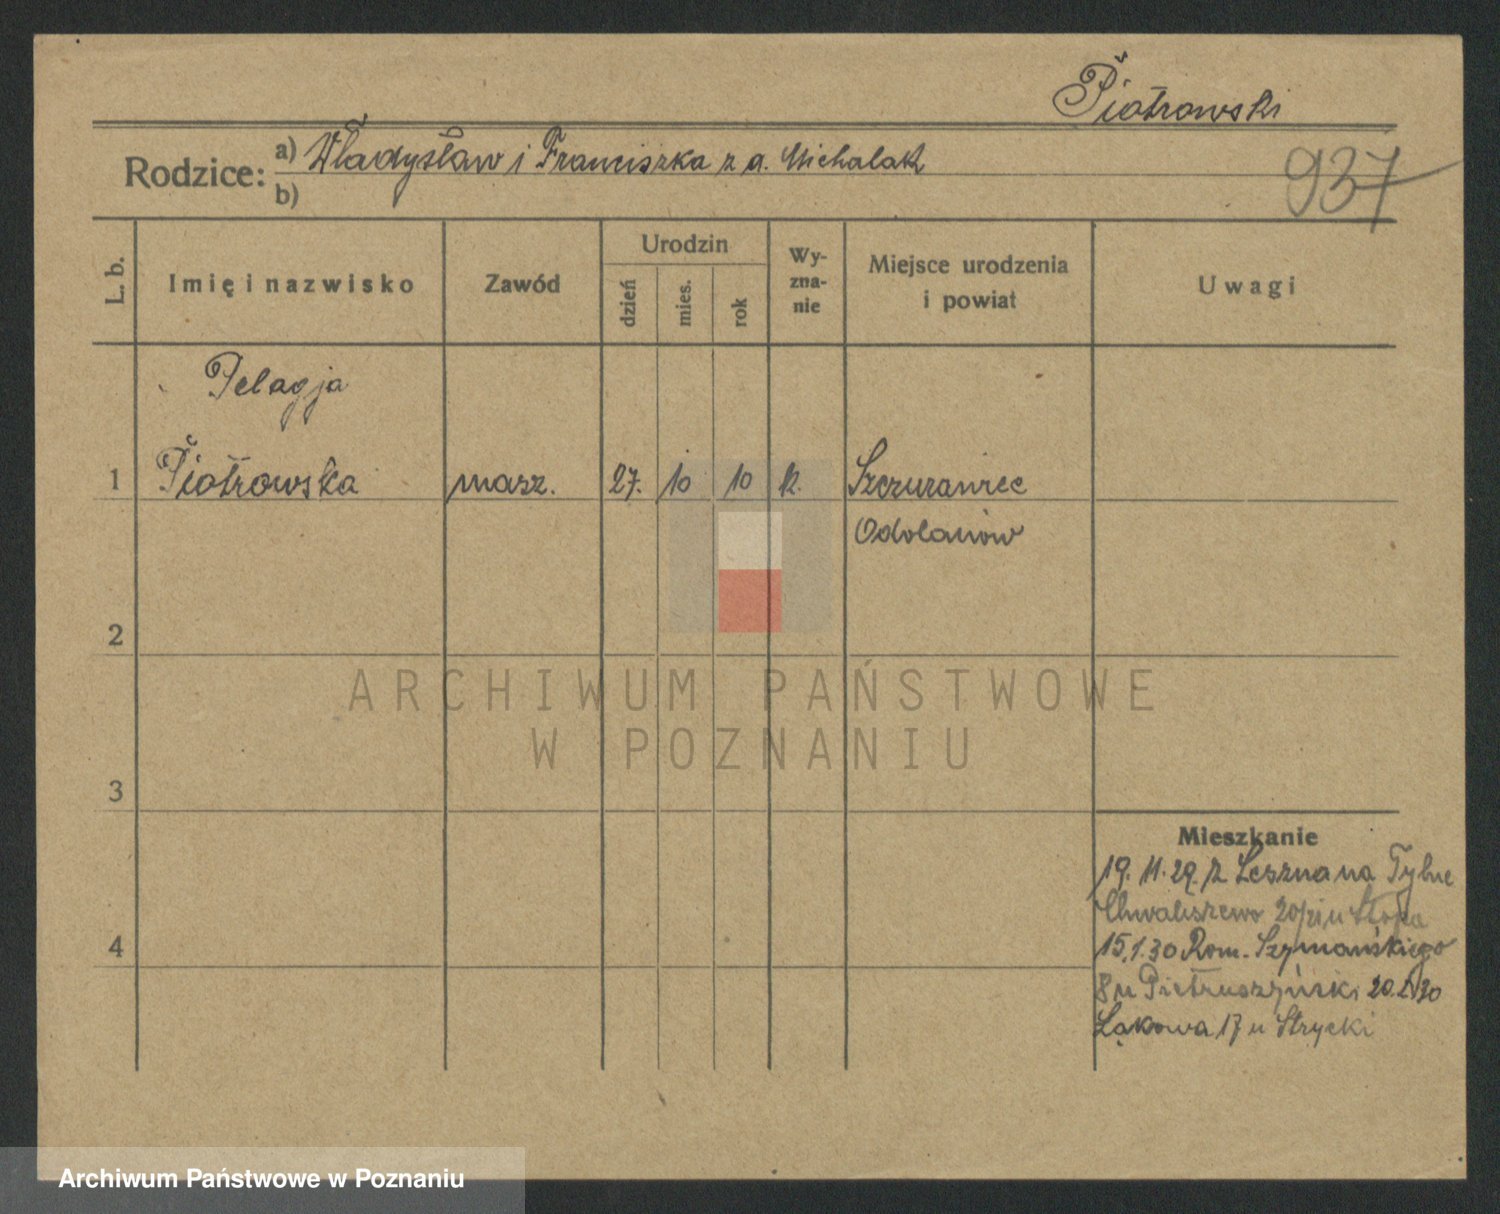 Piotrowski
Rodzice: a) Władysław i Franciszka z d. Michalak
b)
937
L. b.
Imię i nazwisko
Zawód
Urodzin
dzień
mies.
rok
Wy-
zna-
nie
Miejsce urodzenia
i powiat
Uwagi
Pelagja
1 Piotrowska masz. 27. 10 10 k. Szczurawiec
Odolanów
2
ARCHIWUM PAŃSTWOWE
W POZNANIU
3
Mieszkanie
19.11.29. z Leszna na Tylne
Chwaliszewo 20/21 u
15.1.30 Rom. Szymańskiego
4
8 u Pietruszyński 20.2.30
Łąkowa 17 u Strycki
Archiwum Państwowe w Poznaniu